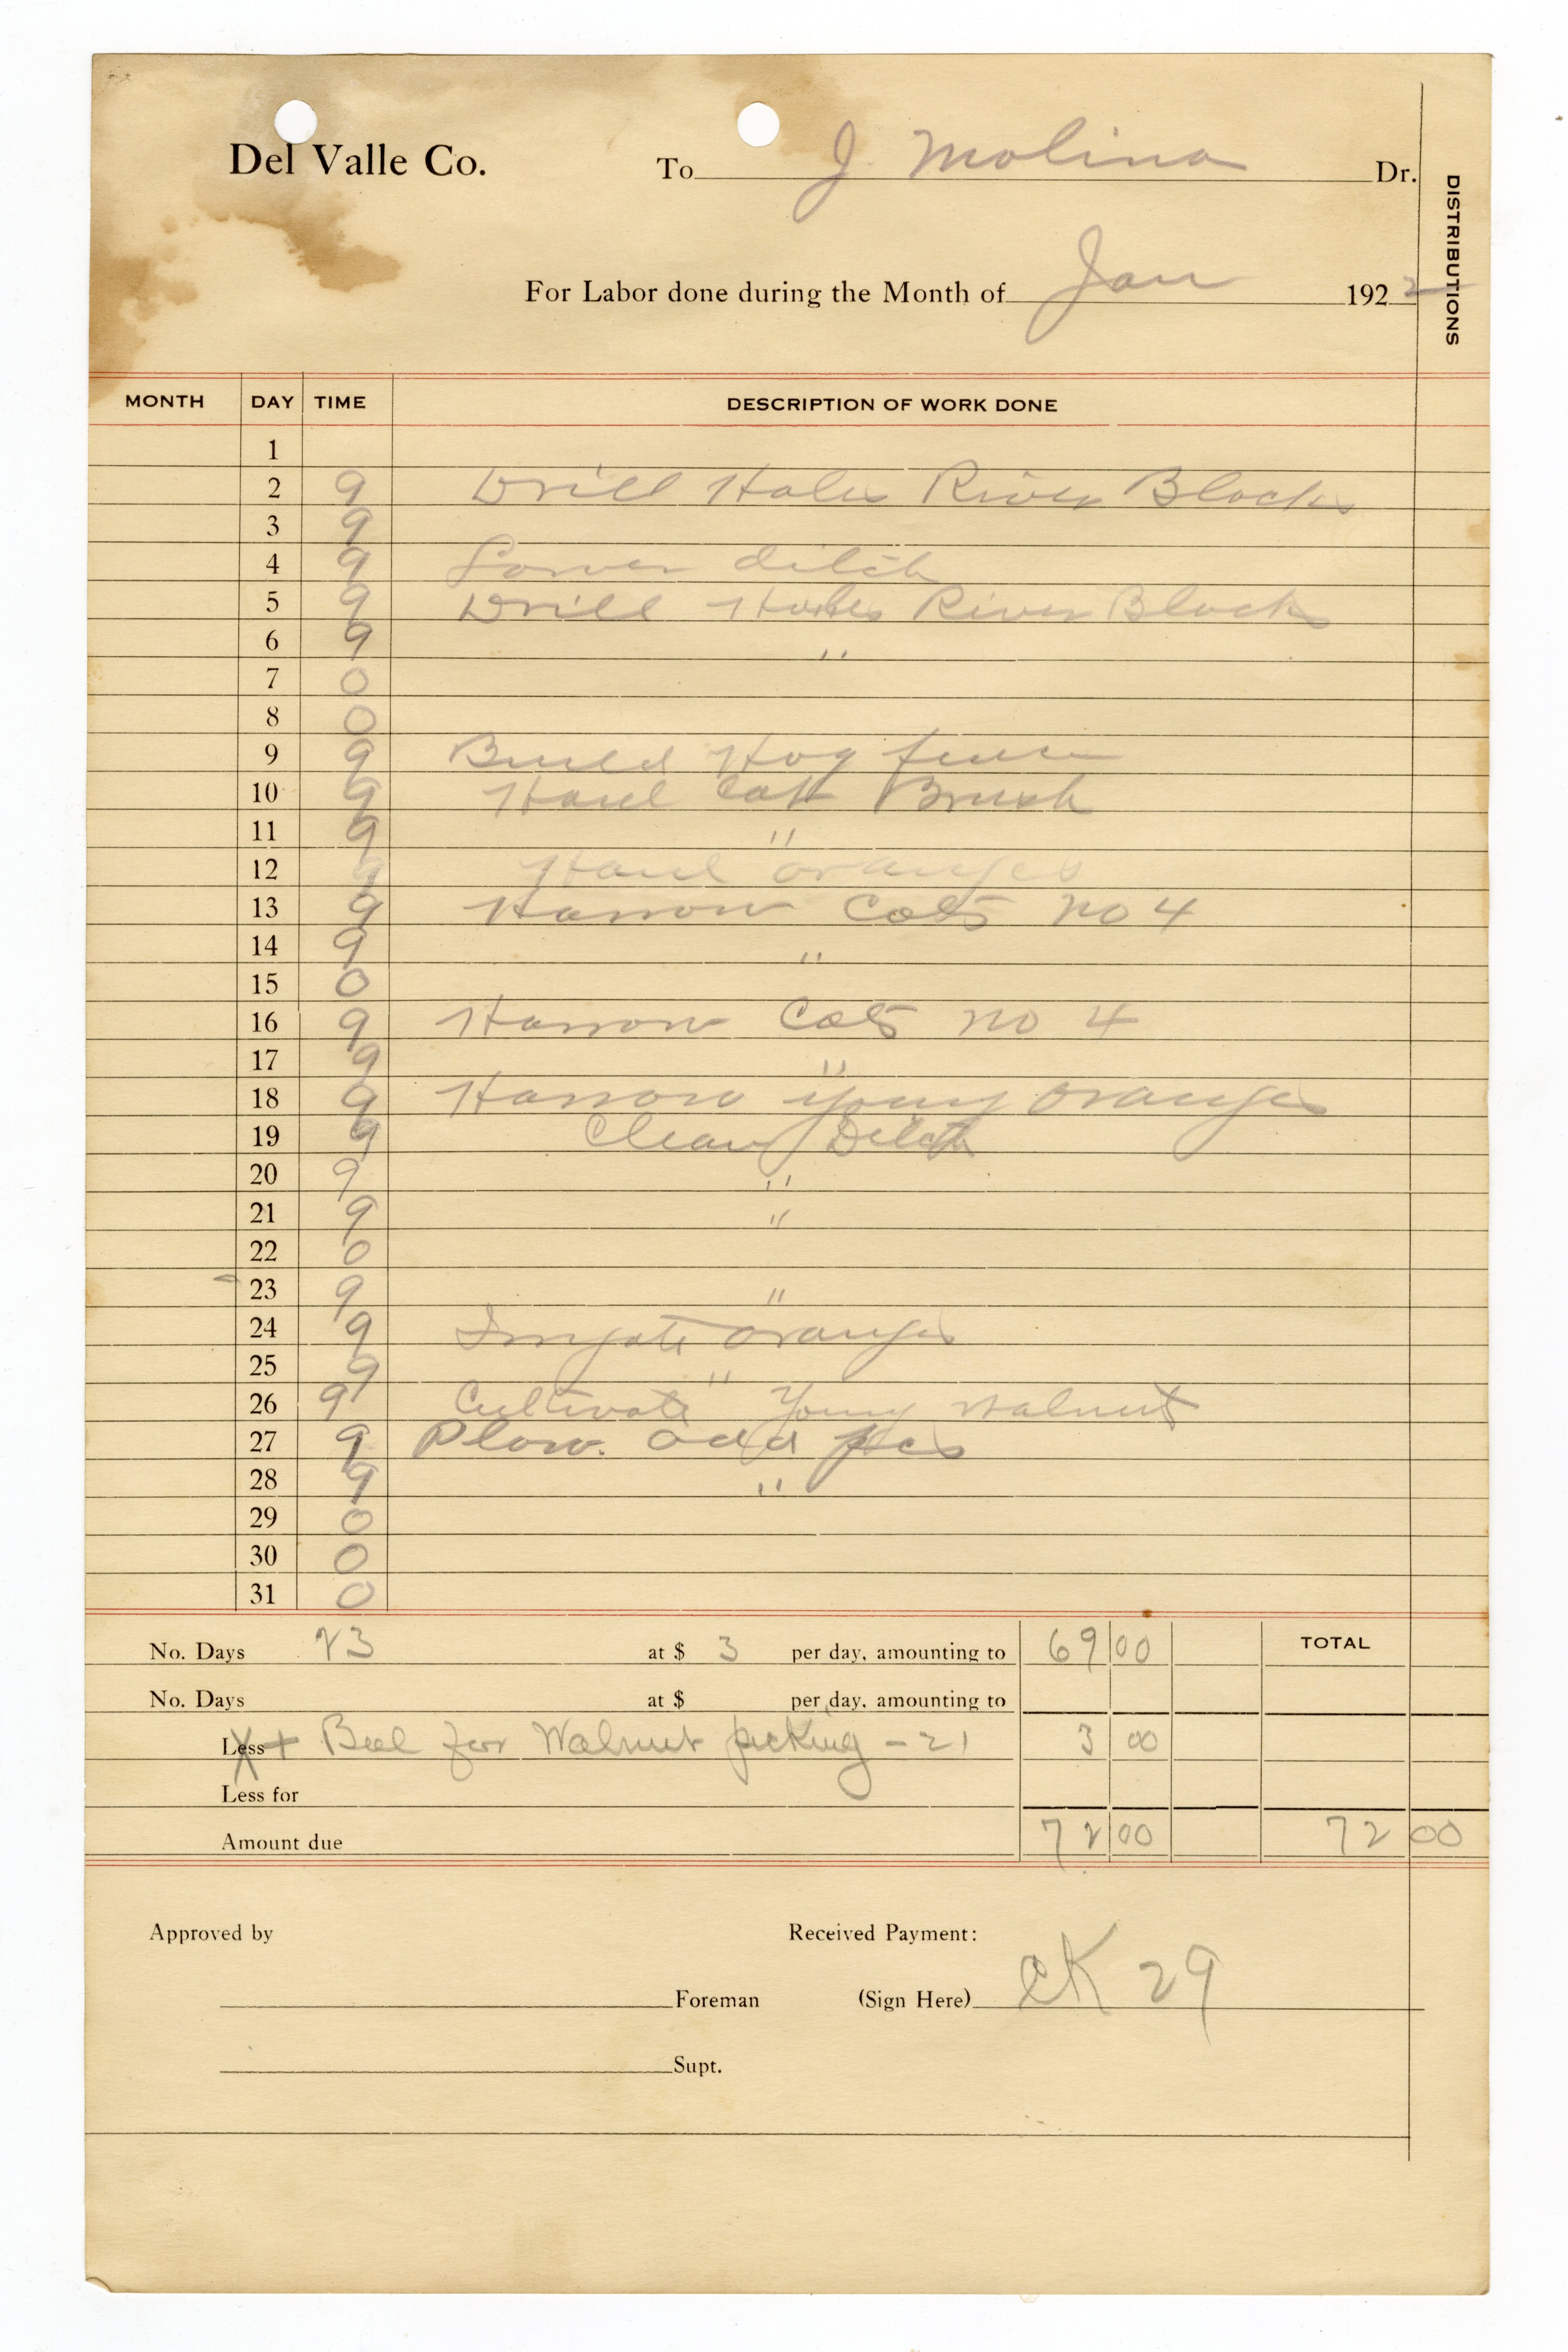 Del Valle Co. To J. Molina Dr.
DISTRIBUTIONS
For Labor done during the Month of Jan 1922
MONTH DAY TIME DESCRIPTION OF WORK DONE
1
2 9 Drill Holes River Block
3 9
4 9 Lower ditch
5 9 Drill Holes River Block
6 9 "
7 0
8 0
9 9 Build Hog fence
10 9 Haul Brush
11 9 "
12 9 Haul oranges
13 9 Harrow Cots no 4
14 9 "
15 0
16 9 Harrow Cots no 4
17 9 "
18 9 Harrow young oranges
19 9 Clean Ditch
20 9 "
21 9 "
22 0
23 9 "
24 9 Irrigate oranges
25 9 "
26 9 Cultivate Young Walnut
27 9 Plow. odd pcs
28 9 "
29 0
30 0
31 0
No. Days 23 at $ 3 per day, amounting to 69 00 TOTAL
No. Days at $ per day, amounting to
Less + Bal for Walnut picking - 21 3 00
Less for
Amount due 72 00 72 00
Approved by Received Payment:
Foreman (Sign Here) CK 29
Supt.